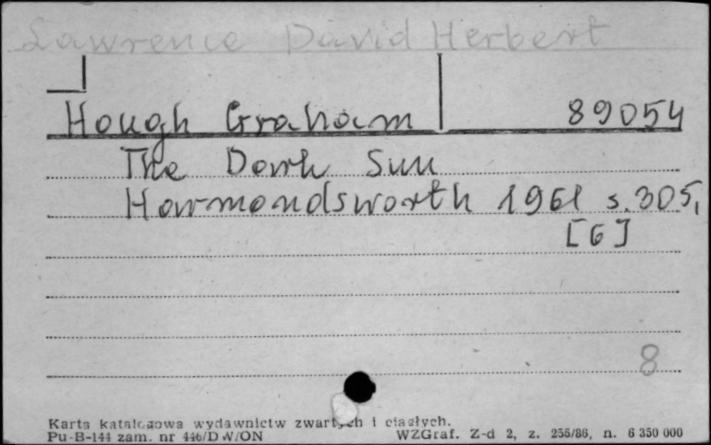 Lawrence David Herbert
Hough Graham 89054
The Dark Sun
Harmondsworth 1961 s. 305,
[6]
8
Karta katalogowa wydawnictw zwartych i ciągłych.
Pu-B-144 zam. nr 446/DW/ON WZGraf. Z-d 2, z. 255/86, n. 6 350 000